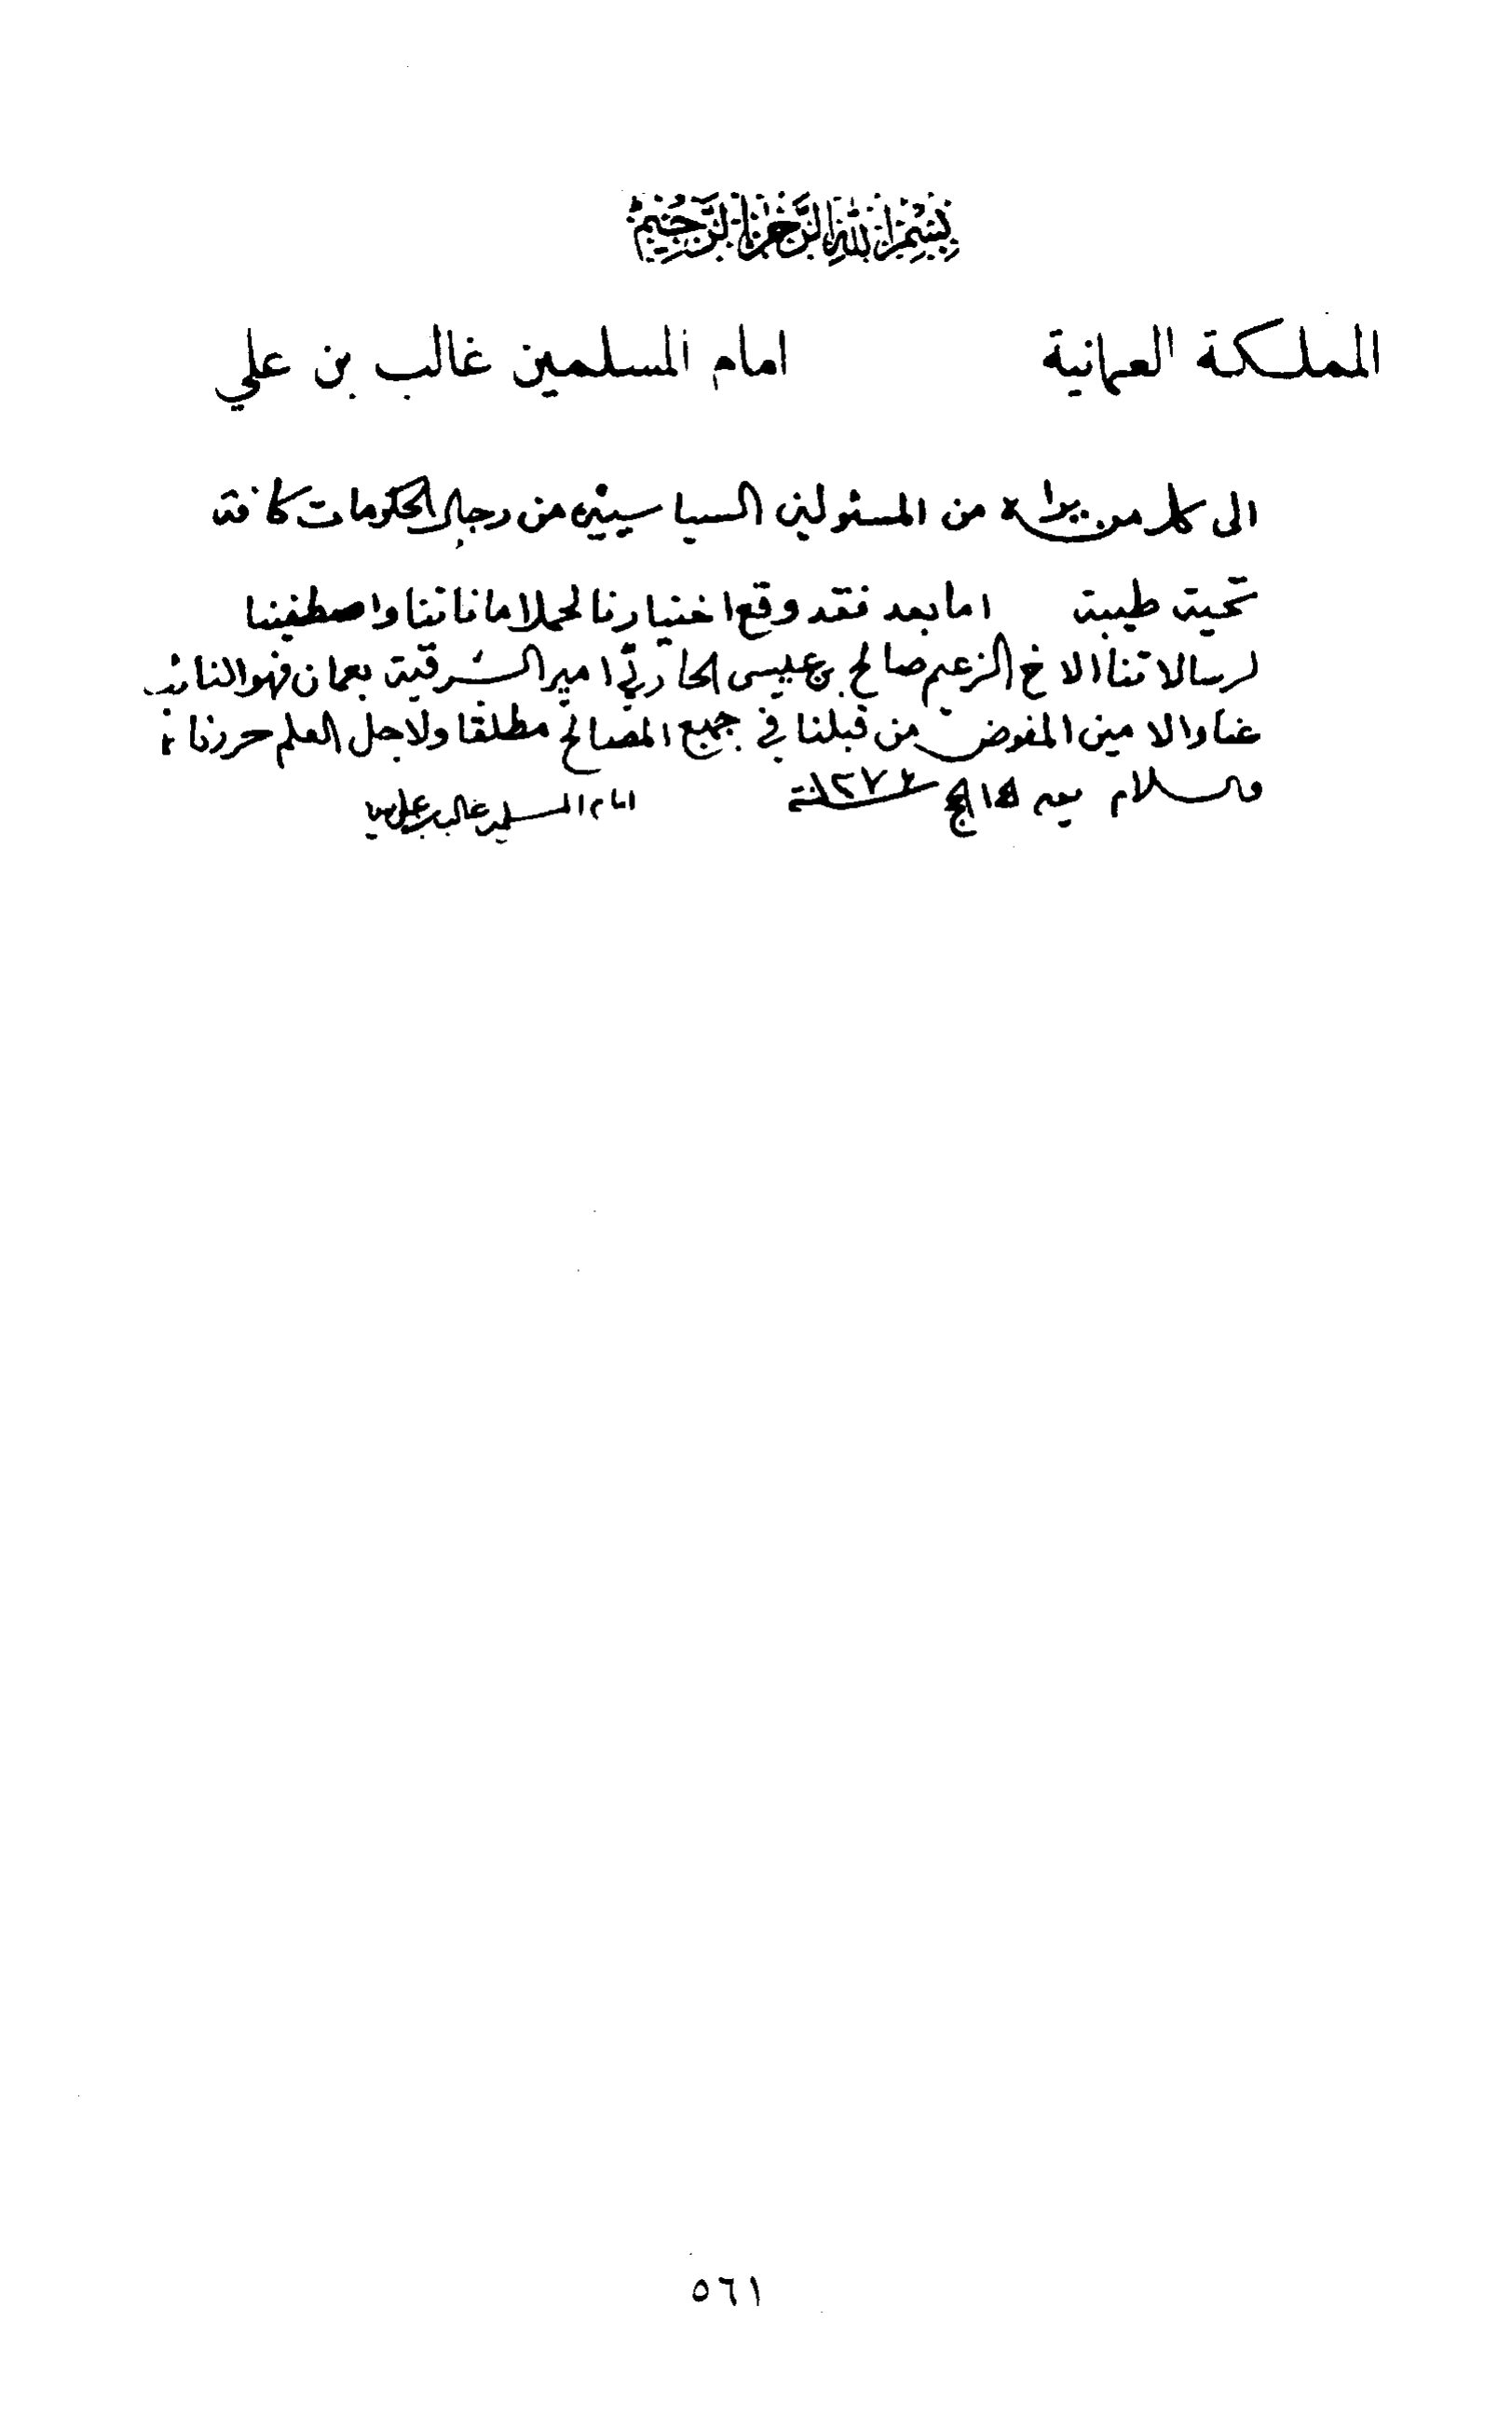 بسم الله الرحمن الرحيم
المملكة العمانية امام المسلمين غالب بن علي
الى كل من يراه من المسئولين السياسيين من رجال الحكومات كافة
تحية طيبة اما بعد فقد وقع اختيارنا لحمل اماناتنا واصطفينا
لرسالاتنا الاخ الزعيم صالح بن عيسى الحارثي امير الشرقية بعمان فهو النائب
عنا والامين المفوض من قبلنا في جميع المصالح مطلقا ولاجل العلم حررناه
والسلام
امام المسلمين غالب بن علي
٥٦١